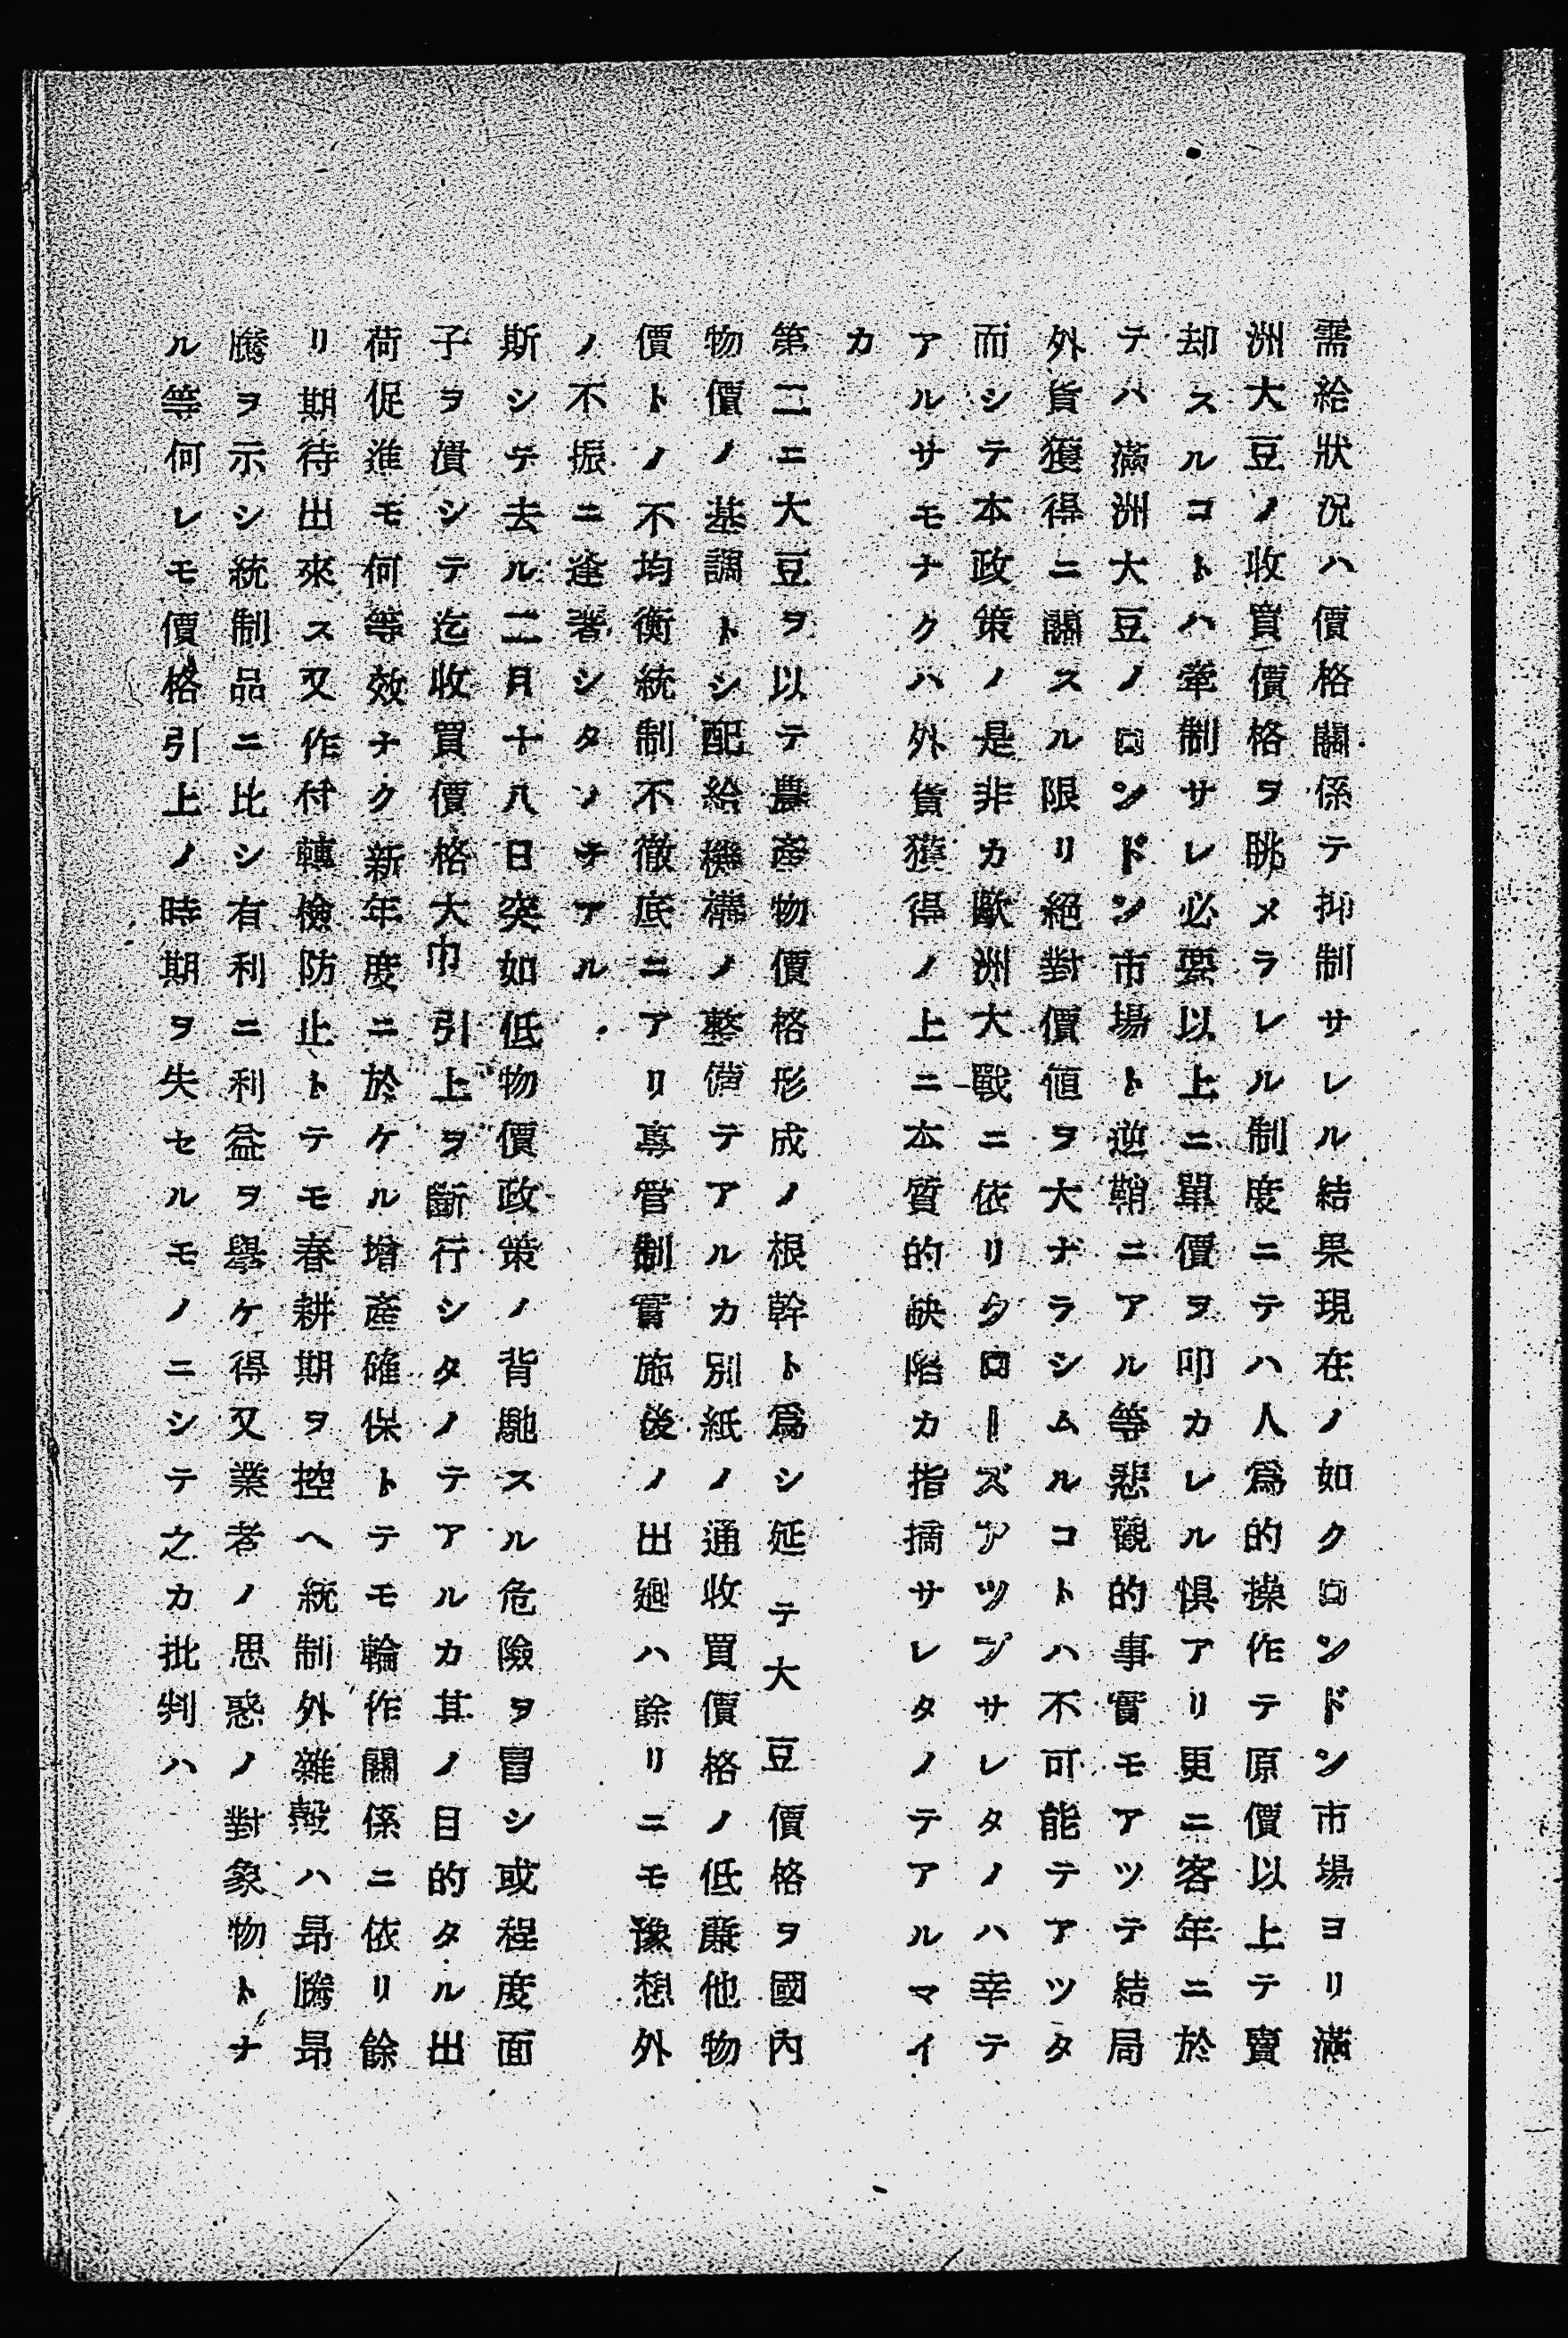 需給狀況ハ價格關係テ抑制サレル結果現在ノ如クロンドン市場ヨリ滿
洲大豆ノ收買價格ヲ眺メラレル制度ニテハ人爲的操作テ原價以上テ賣
却スルコトハ牽制サレ必要以上ニ單價ヲ叩カレル惧アリ更ニ客年ニ於
テハ滿洲大豆ノロンドン市場ト逆鞘ニアル等悲觀的事實モアツテ結局
外貨獲得ニ關スル限リ絕對價値ヲ大ナラシムルコトハ不可能テアツタ
而シテ本政策ノ是非カ歐洲大戰ニ依リクローズアツプサレタノハ幸テ
アルサモナクハ外貨獲得ノ上ニ本質的缺陷カ指摘サレタノテアルマイ
カ
第二ニ大豆ヲ以テ農產物價格形成ノ根幹ト爲シ延テ大豆價格ヲ國內
物價ノ基調トシ配給機構ノ整備テアルカ別紙ノ通收買價格ノ低廉他物
價トノ不均衡統制不徹底ニアリ專管制實施後ノ出廻ハ餘リニモ豫想外
ノ不振ニ逢著シタノテアル．
斯シテ去ル二月十八日突如低物價政策ノ背馳スル危險ヲ冒シ或程度面
子ヲ潰シテ迄收買價格大巾引上ヲ斷行シタノテアルカ其ノ目的タル出
荷促進モ何等效ナク新年度ニ於ケル增產確保トテモ輪作關係ニ依リ餘
リ期待出來ス又作付轉儉防止トテモ春耕期ヲ控ヘ統制外雜穀ハ昂騰昂
騰ヲ示シ統制品ニ比シ有利ニ利益ヲ擧ケ得又業者ノ思惑ノ對象物トナ
ル等何レモ價格引上ノ時期ヲ失セルモノニシテ之カ批判ハ